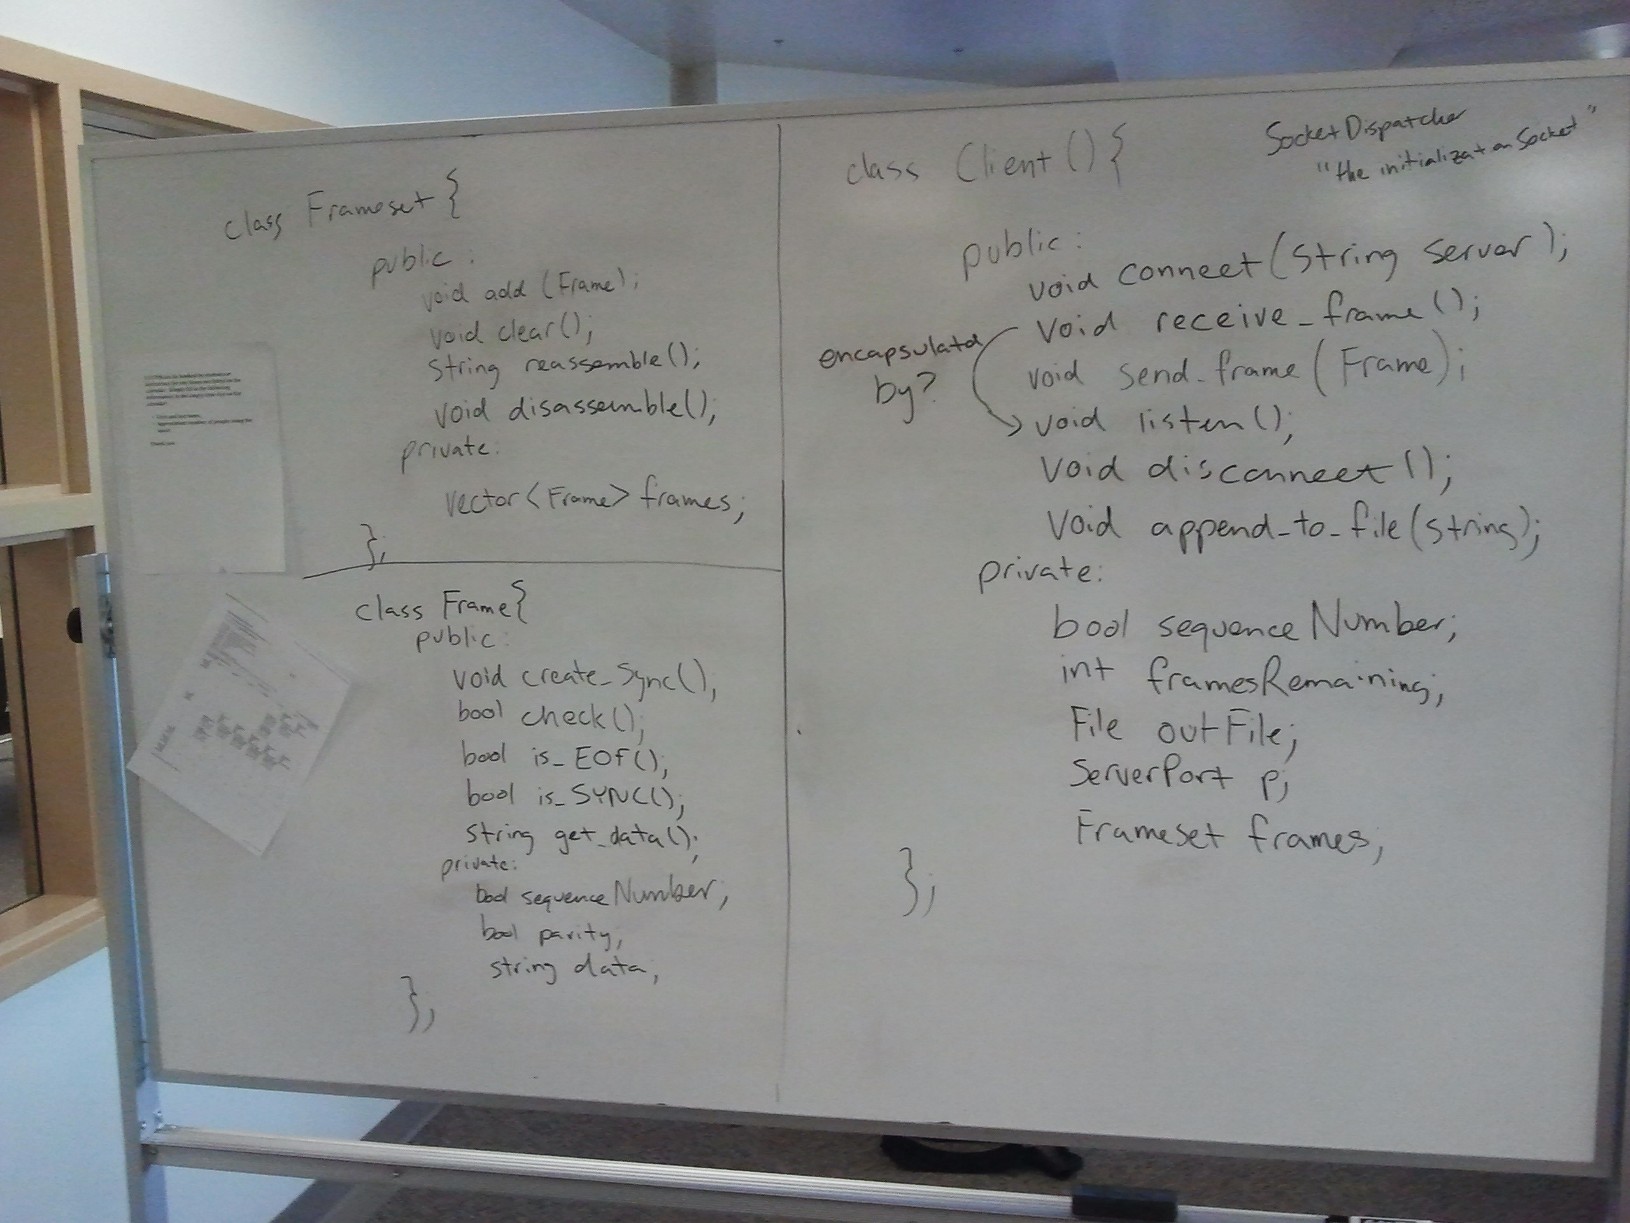 class Frameset {
public:
void add (Frame);
void clear();
string reassemble();
void disassemble();
private:
vector<Frame> frames;
};
class Frame{
public:
void create_Sync();
bool check();
bool is_EOF();
bool is_SYNC();
string get_data();
private:
bool sequenceNumber;
bool parity;
string data;
};
class Client () {
SocketDispatcher
"the initialization Socket"
public:
void connect (String server);
void receive_frame();
void send_frame (Frame);
void listen();
void disconnect();
void append_to_file(string);
encapsulated
by?
private:
bool sequenceNumber;
int framesRemaining;
File outFile;
ServerPort p;
Frameset frames;
};